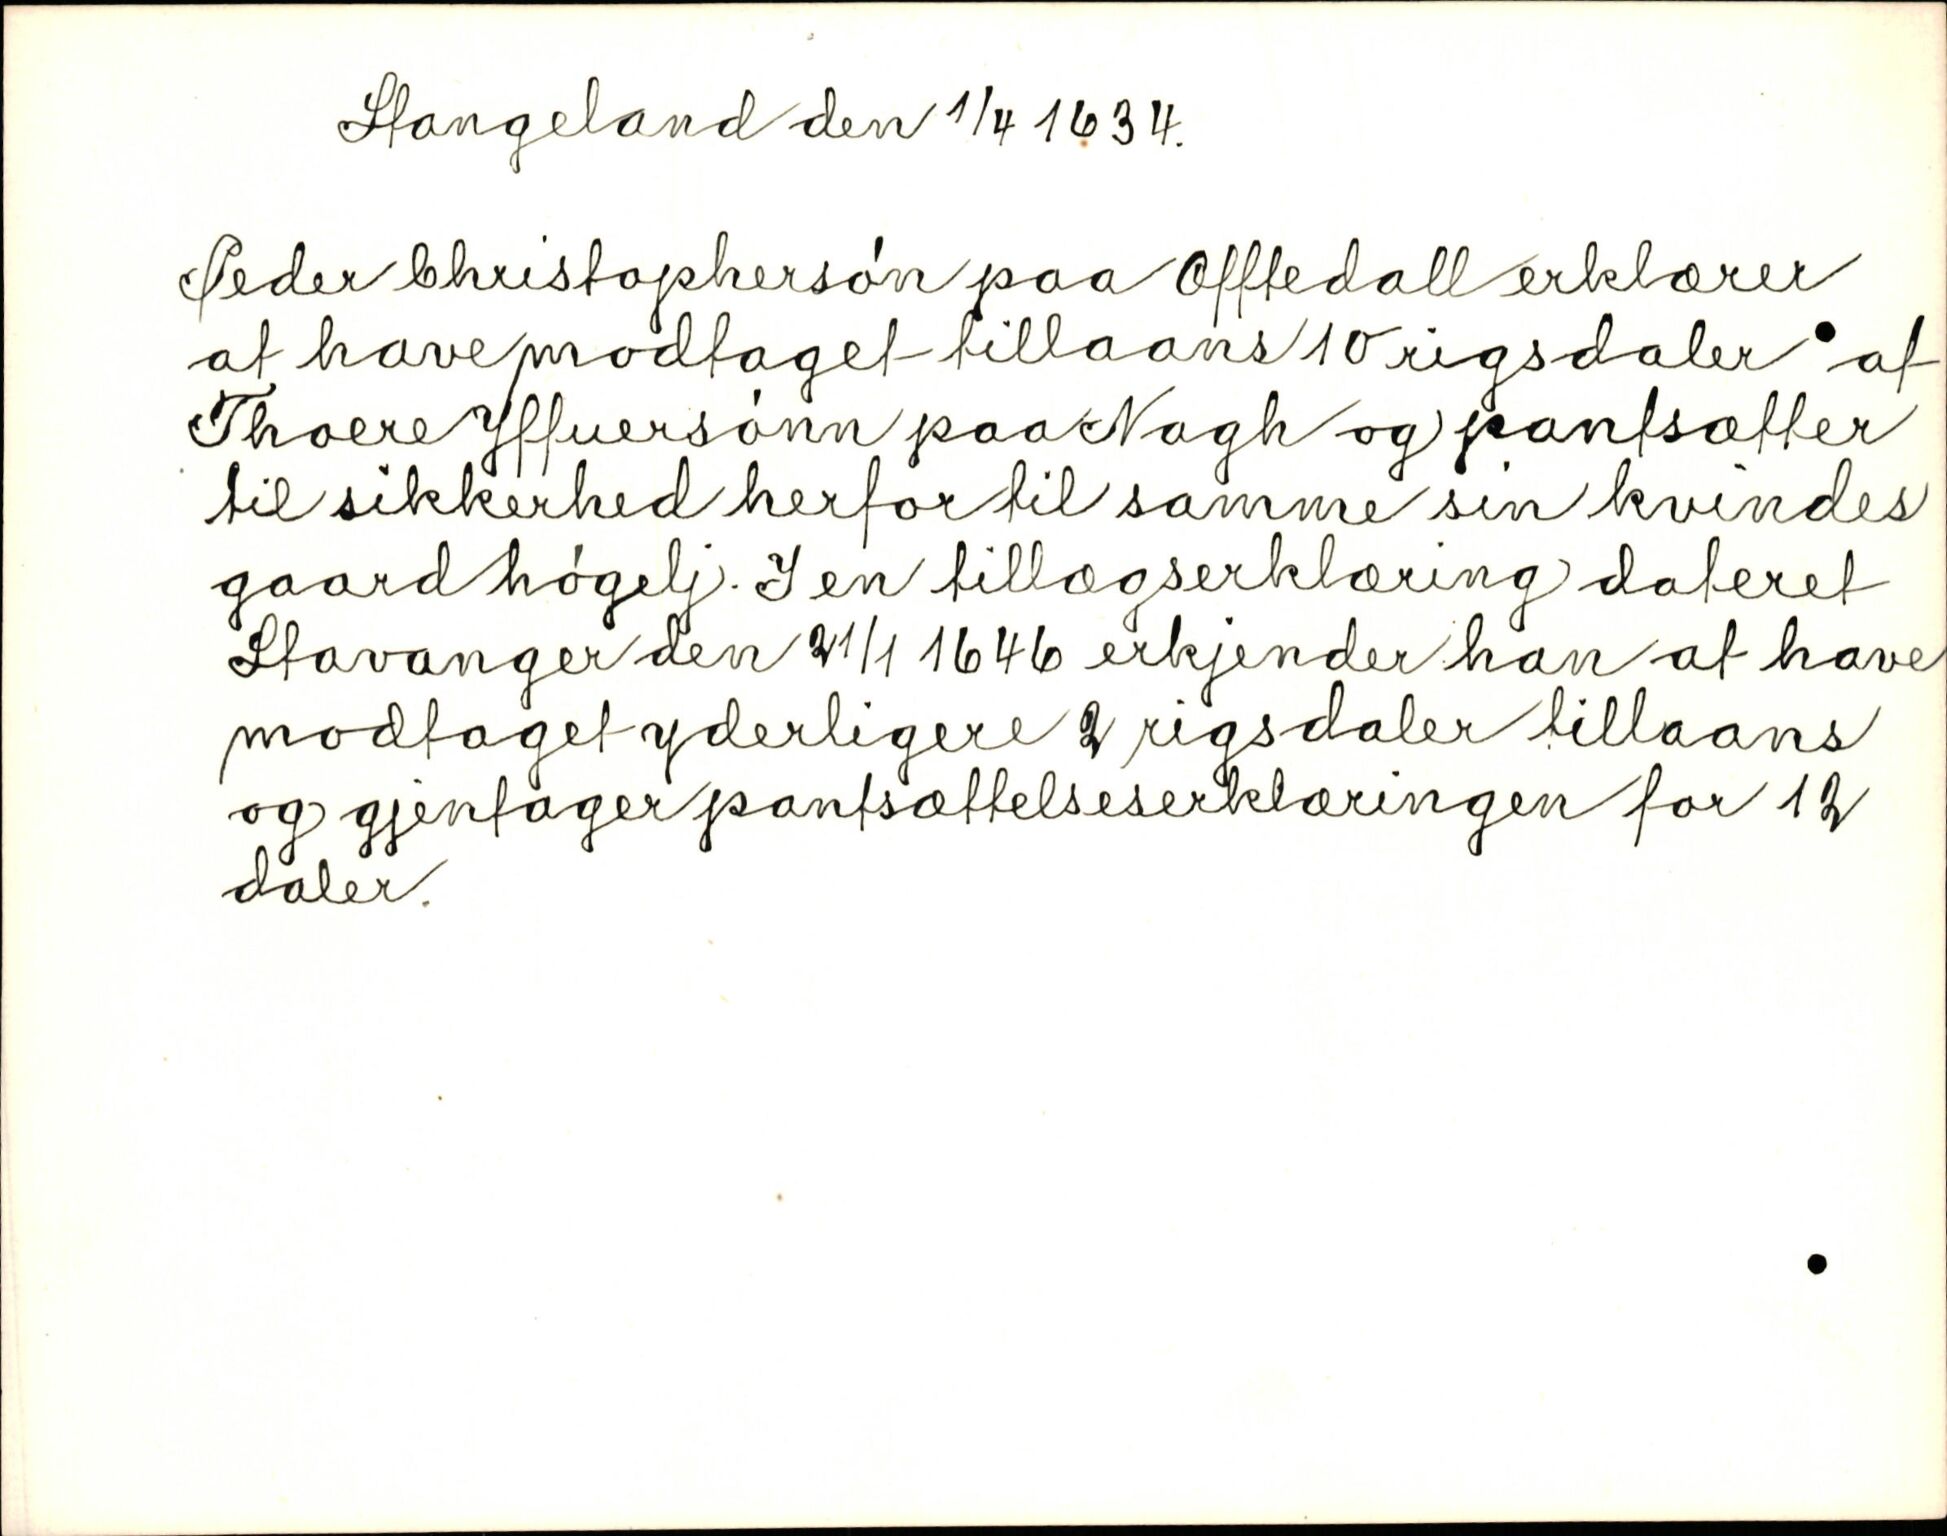 Stangeland den 1/4 1634.
Peder Christophersón paa Offtedall erklærer
at have modtaget tillaans 10 rigsdaler af
Thoere Yffuersónn paa Nagh og pantsætter
til sikkerhed herfor til samme sin kvindes
gaard hógelj. I en tillægserklæring dateret
Stavanger den 21/1 1646 erkjender han at have
modtaget yderligere 2 rigsdaler tillaans
og gjentager pantsættelseserklæringen for 12
daler.